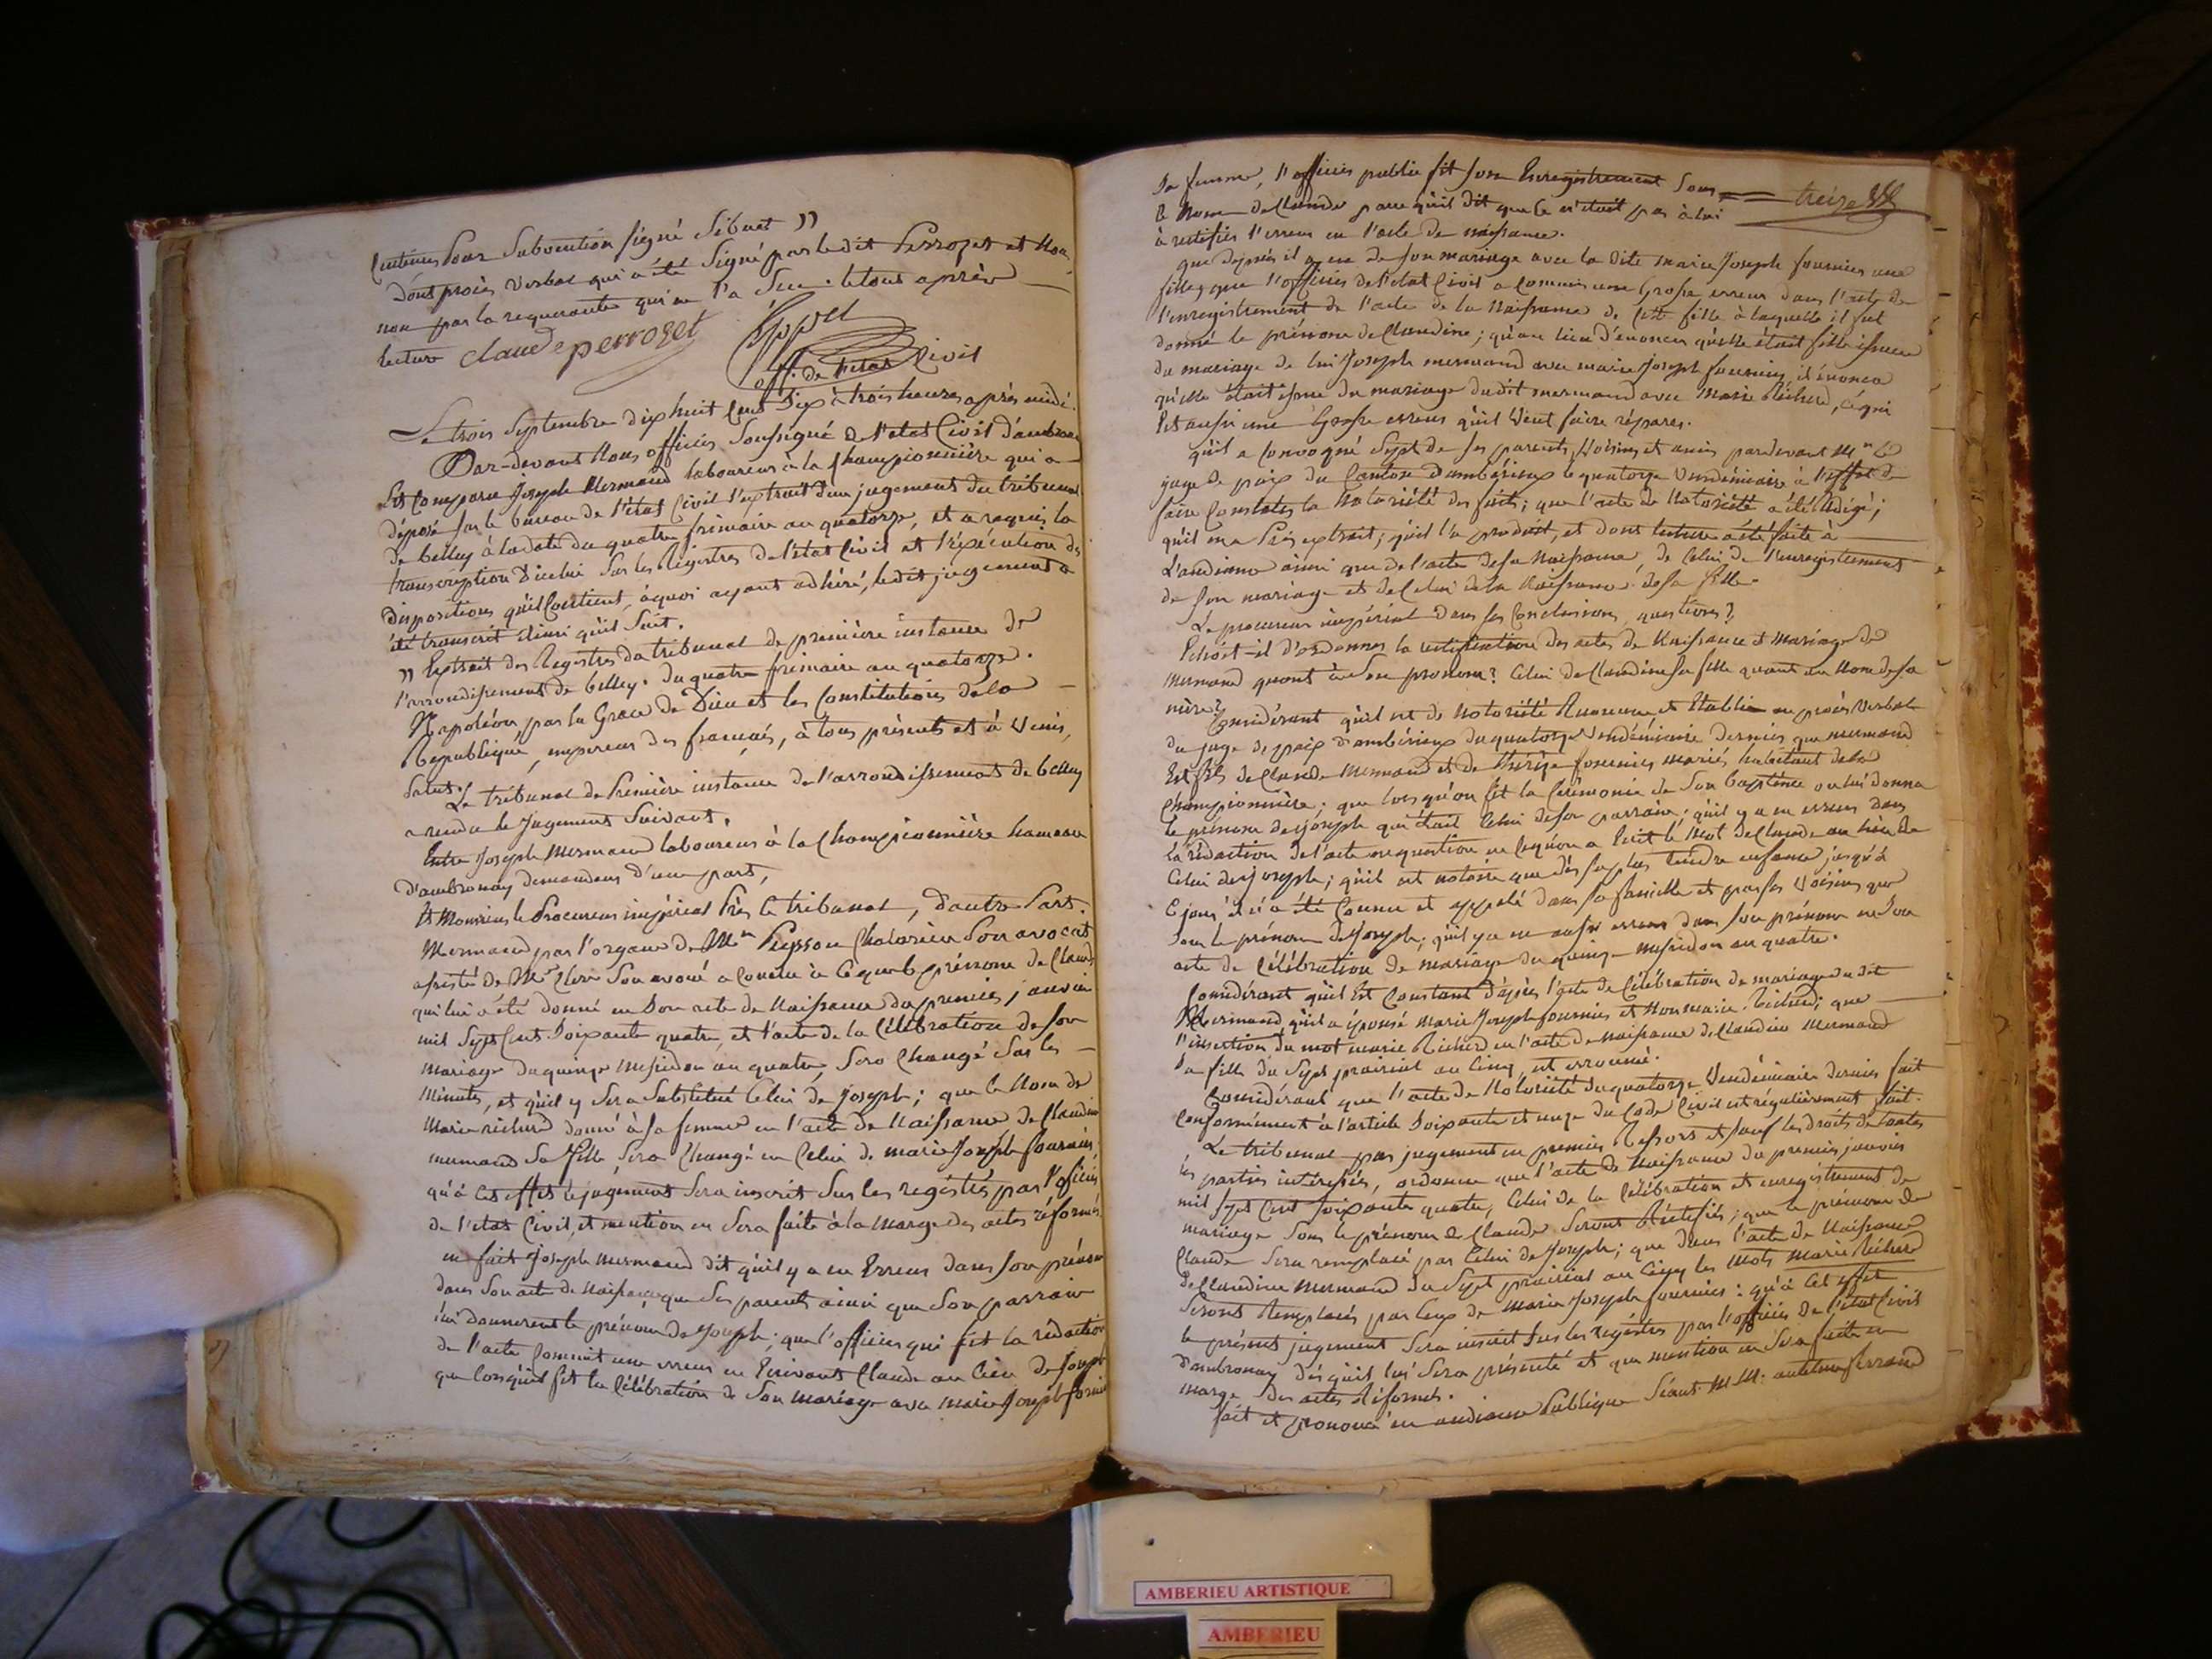 Centimes pour Subvention signé Sibuet "
Dont procès verbal qui a été signé par le dit Perrozet et Nous
non par la requerante qui ne l'a Seu. le tout après
lecture claude perrozet
off. de l'etat Civil
Le trois Septembre dix huit Cent Dix à trois heures après midi.
Par-devant Nous officier Soussigné de l'etat Civil d'ambronay
Est Comparu Joseph Mermand laboureur à la Championnière qui a
déposé sur le bureau de l'état Civil l'extrait d'un jugement du tribunal
de belley à la date du quatre frimaire an quatorze, et a requis la
transcription d'icelui Sur les Régistres de l'état Civil et l'éxécution des
dispositions qu'il Contient, àquoi ayant adhéré, ledit jugement a
été transcrit Ainsi qu'il Suit.
" Extrait des Régistres du tribunal de première instance de
l'arrondissement de belley. du quatre frimaire an quatorze.
Napoléon, par la Grace de Dieu et les Constitutions de la
République, empereur des francais, à tous présents et à Venir,
Salut.
Le tribunal de Première instance de l'arrondissement de belley
a rendu le Jugement Suivant.
Entre Joseph Mermand laboureur à la Championnière hameau
d'ambronay demandeur d'une part,
Et Monsieur le Procureur impérial Près le tribunal, d'autre Part.
Mermand par l'organe de Me. Peysson Son avocat
assisté de Me. Clerc Son avoué a Conclu à Ceque le prénom de Claude
qui lui a été donné en Son acte de Naissance du premier janvier
mil Sept Cent Soixante quatre, et l'acte de la Célébration de son
mariage du quinze messidor an quatre, Sera Changé Sur les
Minutes, et qu'il y Sera Substitué Celui de Joseph; que le Nom de
Marie richerd donné à Sa femme en l'acte de Naissance de Claudine
mermand Sa fille Sera Changé en Celui de marie Joseph fournier,
qu'à Cet effet le jugement Sera inscrit Sur les registres par l'officier
de l'etat Civil, et mention en Sera faite à la Marge des actes réformés.
en fait Joseph Mermand dit qu'il y a eu Erreur dans Son prénom
dans Son acte de Naissance, que Ses parents ainsi que Son parrain
lui donnerent le prénom de Joseph; que l'officier qui fit la rédaction
de l'acte Commit une erreur en Ecrivant Claude au lieu de Joseph
que lorsqu'il fit la Célébration de Son mariage avec Marie Joseph fournier
treize
Sa femme, l'officier public fit Son Enregistrement Sous
le Nom de Claude parcequ'il dit que Ce n'étoit pas à lui
à rectifier l'erreur en l'acte de naissance.
que depuis il a eu de Son mariage avec la dite marie Joseph fournier une
fille, que l'officier de l'etat Civil a Commis une Grosse erreur dans l'acte de
l'enregistrement de l'acte de la Naissance de Cette fille à laquelle il fut
donné le prénom de Claudine; qu'au lieu d'énoncer qu'elle était fille issue
du mariage de lui Joseph mermand avec marie Joseph fournier, il énonca
qu'elle était issue du mariage dudit mermand avec Marie Richerd, Cequi
Est aussi une Grosse erreur qu'il Veut faire réparer.
qu'il a Convoqué Sept de Ses parents, Voisins et amis pardevant Mr. le
juge de paix du Canton d'ambérieux le quatorze Vendémiaire à l'effet de
faire Constater la Notoriété des faits; que l'acte de Notoriété a été Rédigé;
qu'il en a Pris extrait; qu'il l'a produit, et dont lecture a été faite à
L'audiance ainsi que de l'acte de Sa Naissance, de Celui de l'enregistrement
de Son mariage et de Celui de la Naissance de Sa fille.
Le procureur impérial Dans Ses Conclusions, questions?
Echoit-il d'ordonner la rectification des actes de Naissance et mariage de
Mermand quant à Son prénom? Celui de Claudine Sa fille quant au Nom de Sa
mère?
Considérant qu'il est de Notoriété Reconnue et Etablie au procès Verbal
du juge de paix d'ambérieux du quatorze Vendémiaire dernier que mermand
Est fils de Claude Mermand et de Thérèze fournier mariés habitant de la
Championnière; que lorsqu'on fit la Cérémonie de Son baptême on lui donna
le prénom de joseph qui était Celui de Son parrain; qu'il y a eu erreur dans
la rédaction de l'acte en question en Cequ'on a Ecrit le Mot de Claude au lieu de
Celui de joseph; qu'il est notoire que dès Sa plus tendre enfance jusqu'à
Ce jour il n'a été Connu et appelé dans Sa famille et par Ses Voisins que
Sous le prénom de Joseph; qu'il y a eu aussi erreur dans Son prénom en Son
acte de Célébration de mariage du quinze messidor an quatre.
Considérant qu'il Est Constant d'après l'acte de Célébration de mariage du dit
Mermand qu'il a épousé Marie Joseph fournier et Non marie Richerd; que
l'insertion du mot marie Richerd en l'acte de Naissance de Claudine Mermand
Sa fille du Sept prairial an Cinq, est erronné.
Considérant que l'acte de Notoriété du quatorze Vendémiaire dernier fait
Conformément à l'article Soixante et onze du Code Civil est régulièrement fait.
Le tribunal par jugement en premier Ressort et Sauf les droits de toutes
les parties intéressées, ordonne que l'acte de Naissance du premier janvier
mil Sept Cent Soixante quatre, Celui de la Célébration et enregistrement de
mariage Sous le prénom de Claude Seront Réctifiés; que le prénom de
Claude Sera remplacé par Celui de Joseph; que dans l'acte de Naissance
de Claudine Mermand du Sept prairial an Cinq les Mots Marie Richerd
Seront Remplacés par Ceux de Marie Joseph fournier: qu'à Cet effet
le présent jugement Sera inscrit Sur les régistres par l'officier de l'etat Civil
d'ambronay dès qu'il lui Sera présenté et que mention en Sera faite en
marge des actes Réformés.
fait et prononcé en audiance Publique Séant M.M. anthelme ferrand
AMBERIEU ARTISTIQUE
AMBERIEU